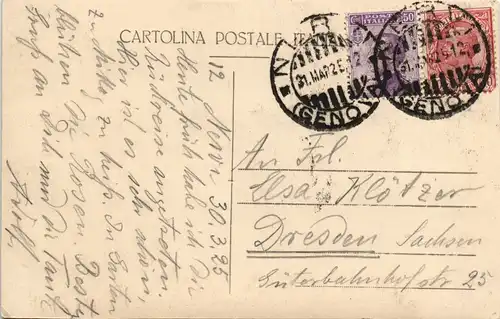 CARTOLINA POSTALE ITALIANA
NERVI
31.MAR25.
(GENOVA)
NERVI
(GENOVA)
POSTE
ITALIANE
50
12 Nervi 30.3.25
Heute früh hab ich die
Rückreise angetreten.
Hier ist es sehr schön,
zu Mittag zu heiß. Im Garten
blühen die Rosen. Beste
Gruß an Dich und die Tante
Adolf
An Frl.
Elsa Klötzer
Dresden Sachsen
Güterbahnhofstr 25